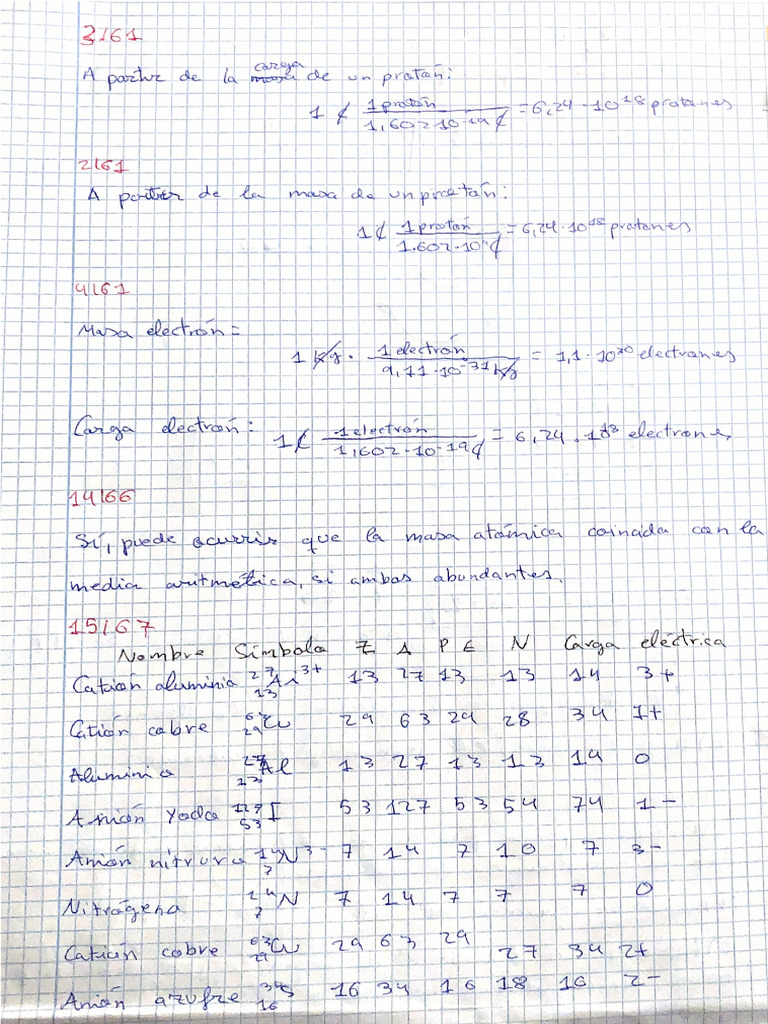 3/61
A partir de la carga de un protón:
1 C 1 protón / 1,602·10-19 C = 6,24·10^18 protones
2/61
A partir de la masa de un protón:
1 C 1 protón / 1.602·10 C = 6,24·10^18 protones
4/61
Masa electrón =
1 kg · 1 electrón / 9,11·10^-31 kg = 1,1·10^30 electrones
Carga electrón: 1 C 1 electrón / 1,602·10-19 C = 6,24·1^18 electrones
14/66
Sí, puede ocurrir que la masa atómica coincida con la
media aritmética, si ambos abundantes.
15/67
Nombre Símbolo Z A P E N Carga eléctrica
Catión aluminio 27 13 Al 3+ 13 27 13 13 14 3+
Catión cobre 63 29 Cu 29 63 29 28 34 1+
Aluminio 27 13 Al 13 27 13 13 14 0
Anión Yodo 127 53 I 53 127 53 54 74 1-
Anión nitruro 14 7 N 3- 7 14 7 10 7 3-
Nitrógeno 14 7 N 7 14 7 7 7 0
Catión cobre 63 29 Cu 29 63 29 27 34 2+
Anión azufre 34 16 S 16 34 16 18 16 2-